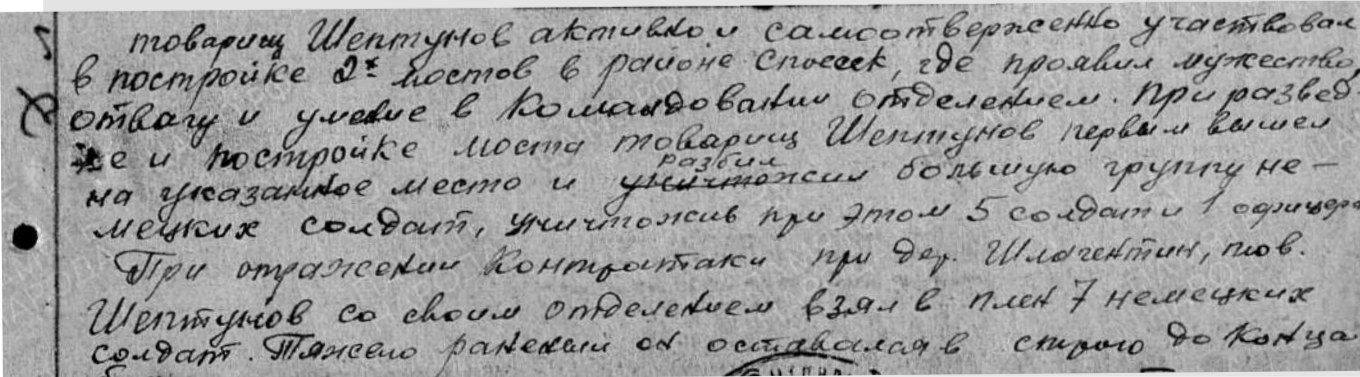 товарищ Шептунов активно и самоотверженно участвовал
в постройке 2х мостов в районе Спессек, где проявил мужество,
отвагу и умение в командовании отделением. При развед-
ке и постройке моста товарищ Шептунов первым вышел
на указанное место и разбил большую группу не-
мецких солдат, уничтожив при этом 5 солдат и 1 офицера
При отражении контратаки при дер. Шлагентин, тов.
Шептунов со своим отделением взял в плен 7 немецких
солдат. Тяжело раненый он оставался в строю до конца